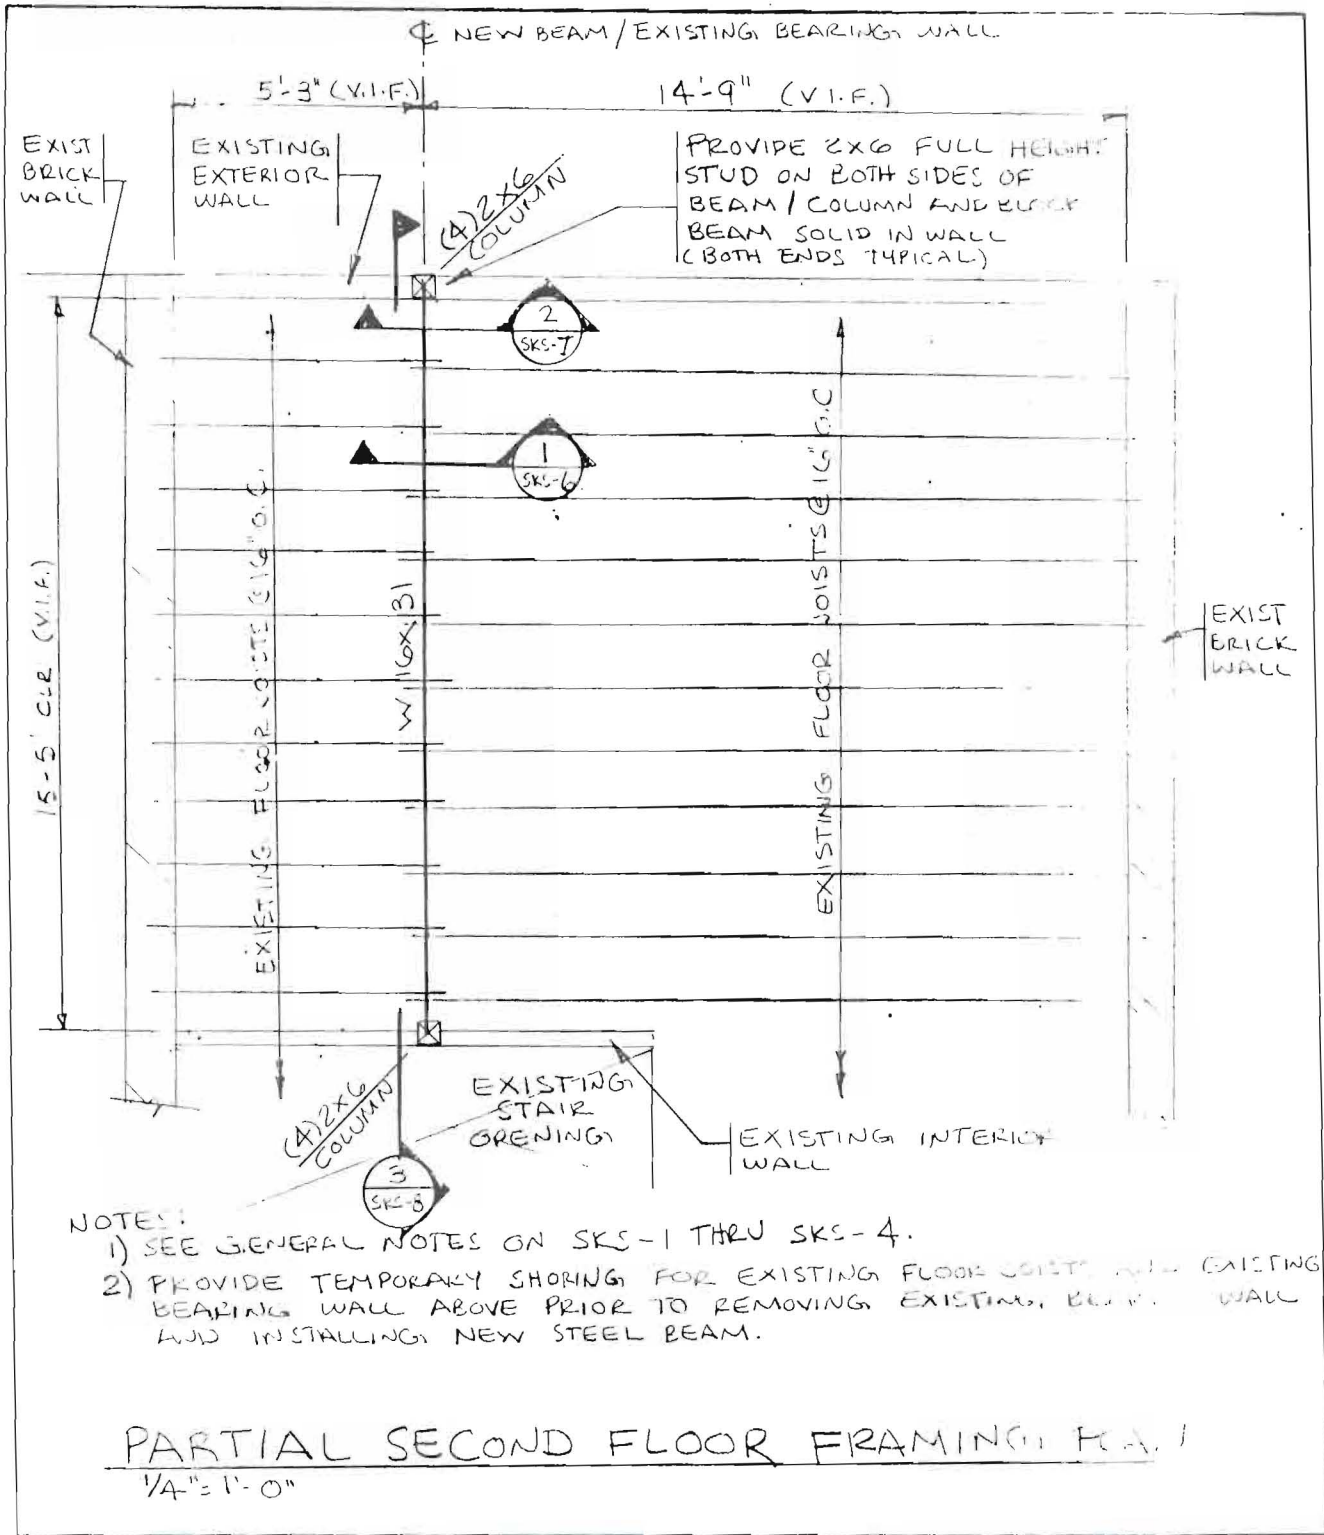 ℄ NEW BEAM/EXISTING BEARING WALL
5'-3" (V.I.F.)
14'-9" (V.I.F.)
EXIST
BRICK
WALL
EXISTING
EXTERIOR
WALL
(4) 2X6
COLUMN
PROVIDE 2X6 FULL HEIGHT
STUD ON BOTH SIDES OF
BEAM/COLUMN AND BLOCK
BEAM SOLID IN WALL
(BOTH ENDS TYPICAL)
2
SKS-7
1
SKS-6
15-5' CLR (V.I.F.)
EXISTING FLOOR JOISTS @ 16" O.C.
W 16X31
EXISTING FLOOR JOISTS @ 16" O.C
EXIST
BRICK
WALL
(4) 2X6
COLUMN
EXISTING
STAIR
OPENING
EXISTING INTERIOR
WALL
3
SKS-8
NOTES:
1) SEE GENERAL NOTES ON SKS-1 THRU SKS-4.
2) PROVIDE TEMPORARY SHORING FOR EXISTING FLOOR JOISTS EXISTING
BEARING WALL ABOVE PRIOR TO REMOVING EXISTING WALL
AND INSTALLING NEW STEEL BEAM.
PARTIAL SECOND FLOOR FRAMING
1/4"=1'-0"